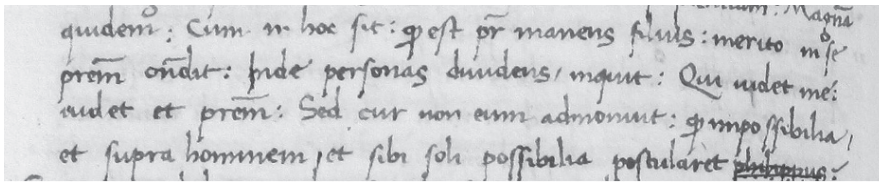 quidem: Cum in hoc sit: qp est pr̄ manens filius: merito in se
prem̄ on̄dit: þide personas diuidens, inquit: Qui uidet me:
uidet et prem̄: Sed cur non eum admonuit: qp impossibilia,
et supra hominem, et sibi soli possibilia postularet philippus: